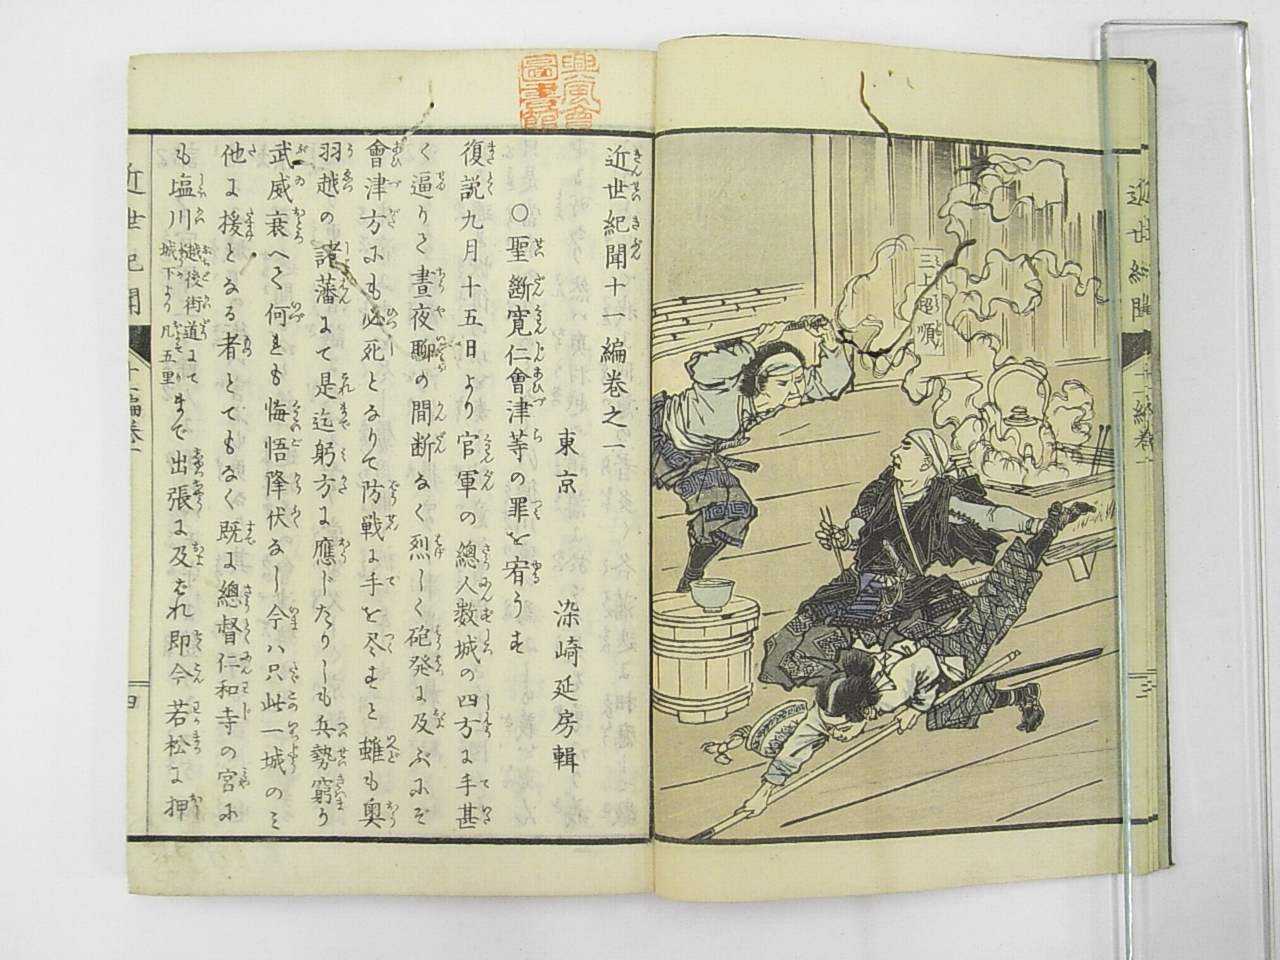 近世紀聞
十一編巻一
三
三上超順
興風會
圖書館
近世紀聞十一編巻之一
東京 染崎延房輯
○聖断寛仁會津等の罪を宥うす
復説九月十五日より官軍の總人数城の四方に手甚
く逼りて晝夜聊の間断なく烈しく砲発に及ぶにぞ
會津方にも必死となりて防戦に手を尽すと雖も奥
羽越の諸藩にて是迄躬方に應じたりしも兵勢窮り
武威衰へて何れも悔悟降伏なし今ハ只此一城のミ
他に援となる者とてもなく既に總督仁和寺の宮に
も塩川越後街道にて城下より凡五里まで出張に及ばれ即今若松に押
近世紀聞
十一編巻一
四